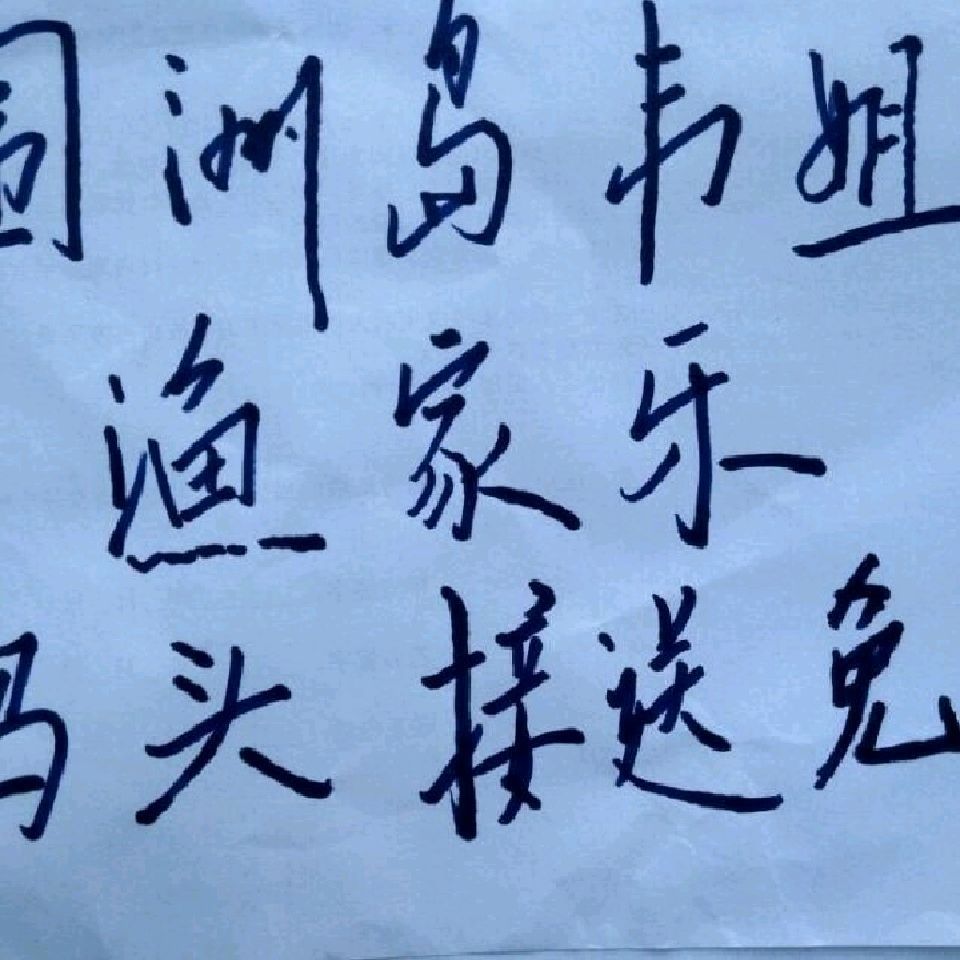 涠洲岛韦姐
渔家乐
码头 接送免